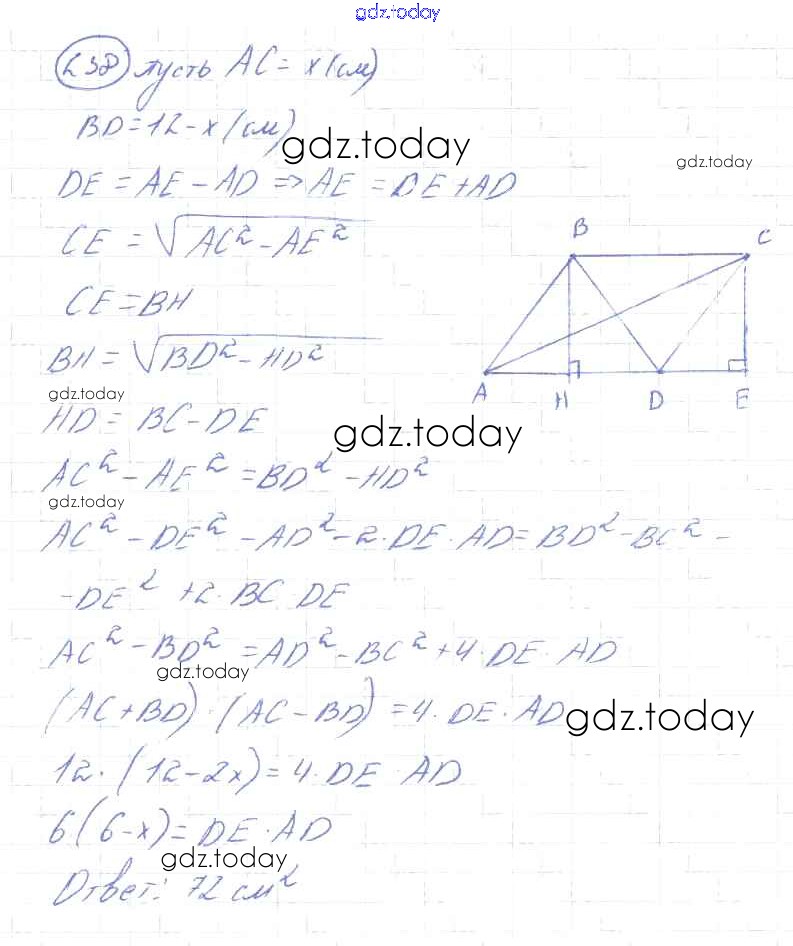 gdz.today
238 пусть AC = x (см)
BD = 12 - x (см)
gdz.today
gdz.today
DE = AE - AD => AE = DE + AD
CE = √AC² - AE²
B
C
CE = BH
BH = √BD² - HD²
gdz.today
A
H
D
E
HD = BC - DE
gdz.today
AC² - AE² = BD² - HD²
gdz.today
AC² - DE² - AD² - 2 · DE · AD = BD² - BC² -
- DE² + 2 · BC · DE
AC² - BD² = AD² - BC² + 4 · DE · AD
gdz.today
(AC + BD) · (AC - BD) = 4 · DE · AD
gdz.today
12 · (12 - 2x) = 4 · DE · AD
6(6 - x) = DE · AD
gdz.today
Ответ: 72 см²